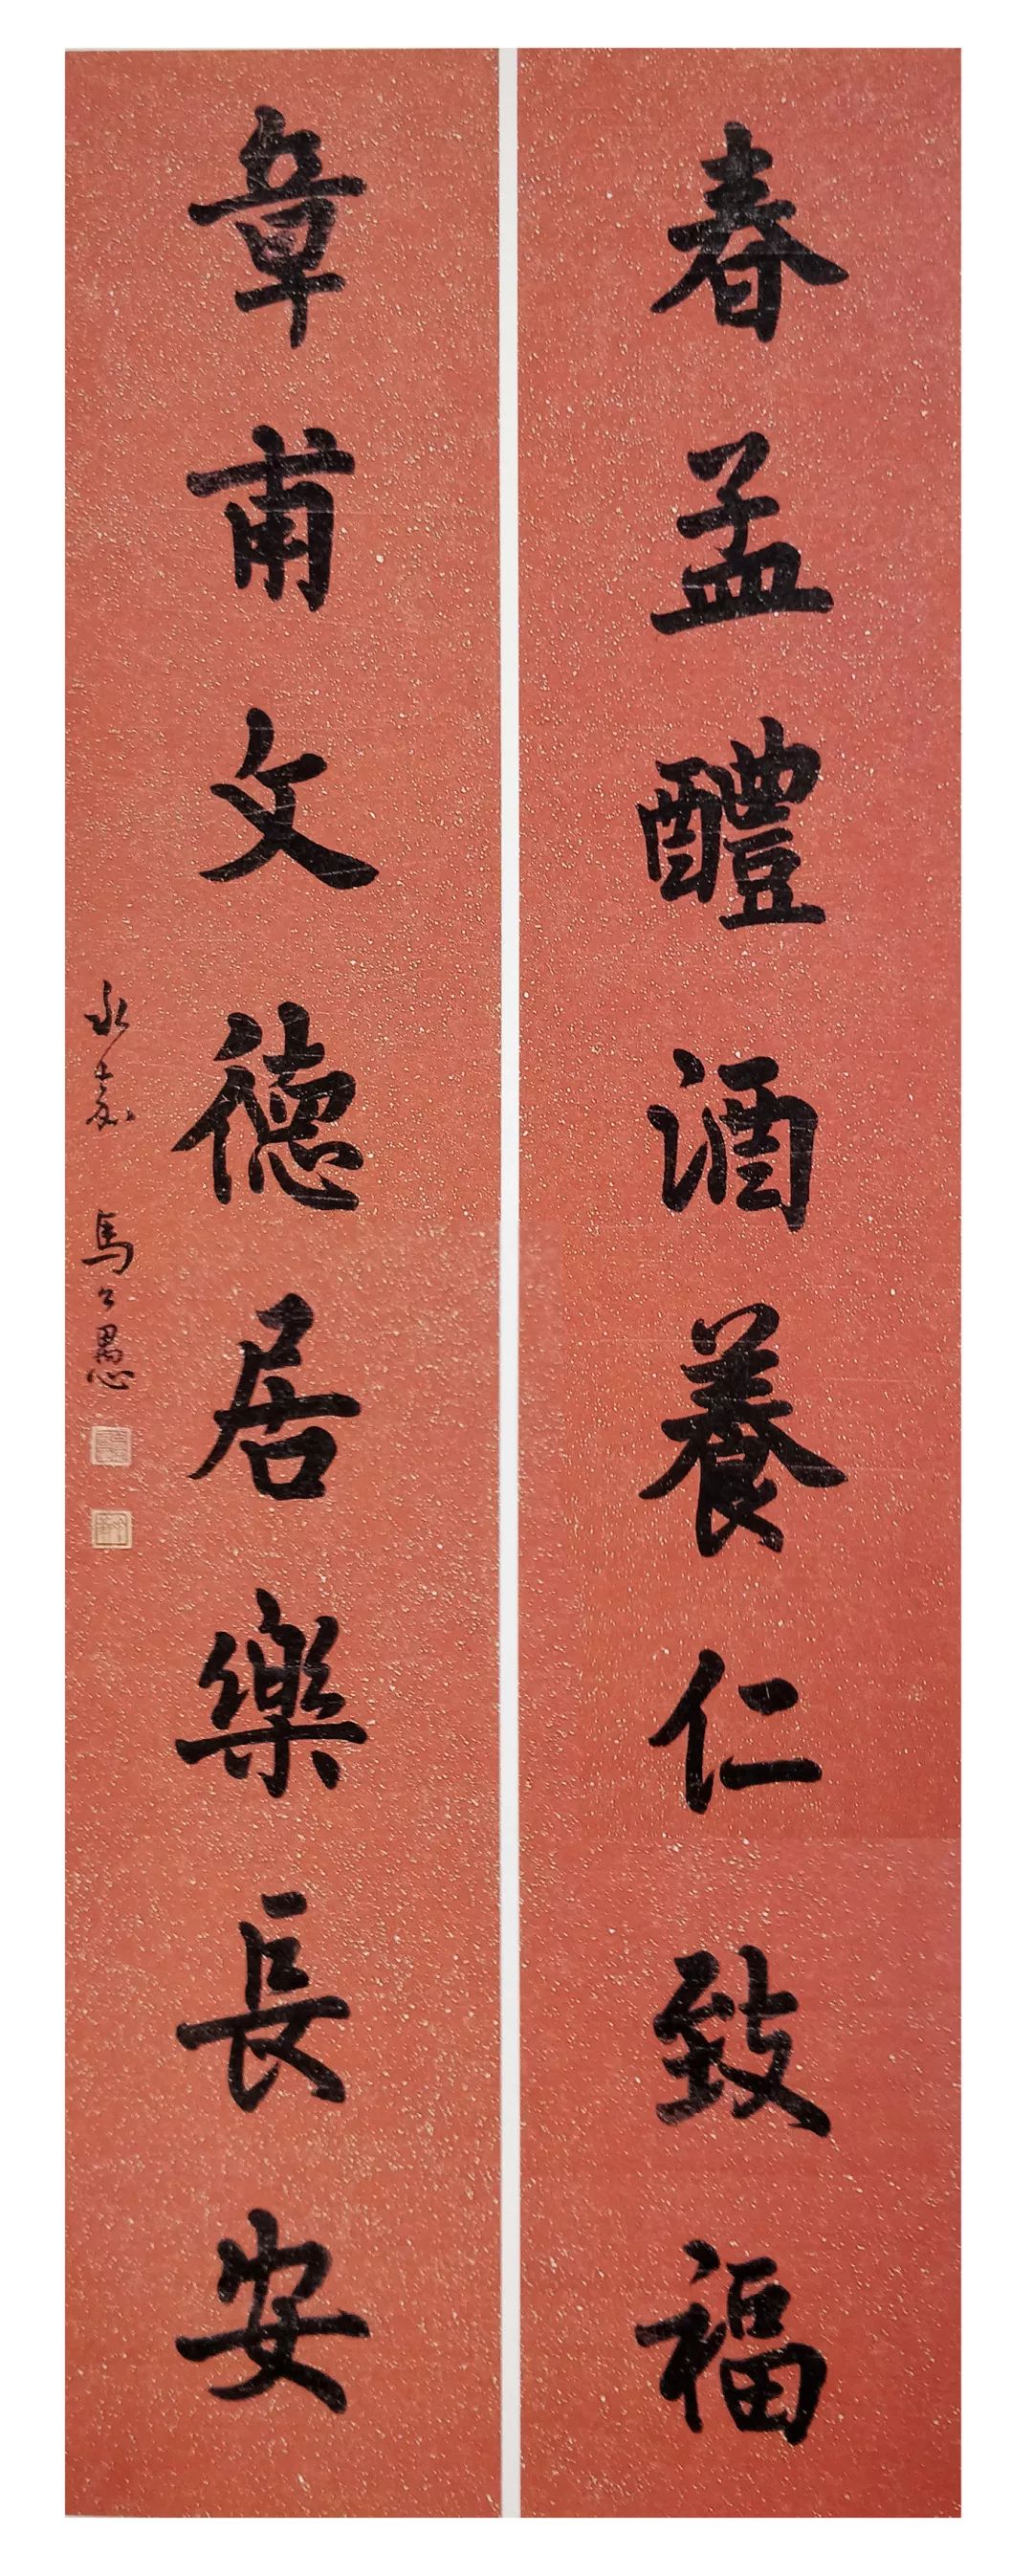 春孟醴酒養仁致福
章甫文德居樂長安
永嘉 馬公愚